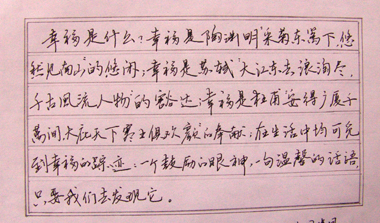 幸福是什么？幸福是陶渊明“采菊东篱下，悠
然见南山”的悠闲；幸福是苏轼“大江东去，浪淘尽，
千古风流人物”的豁达；幸福是杜甫“安得广厦千
万间，大庇天下寒士俱欢颜”的奉献；在生活中均可见
到幸福的踪迹：一个鼓励的眼神，一句温馨的话语，
只要我们去发现它。